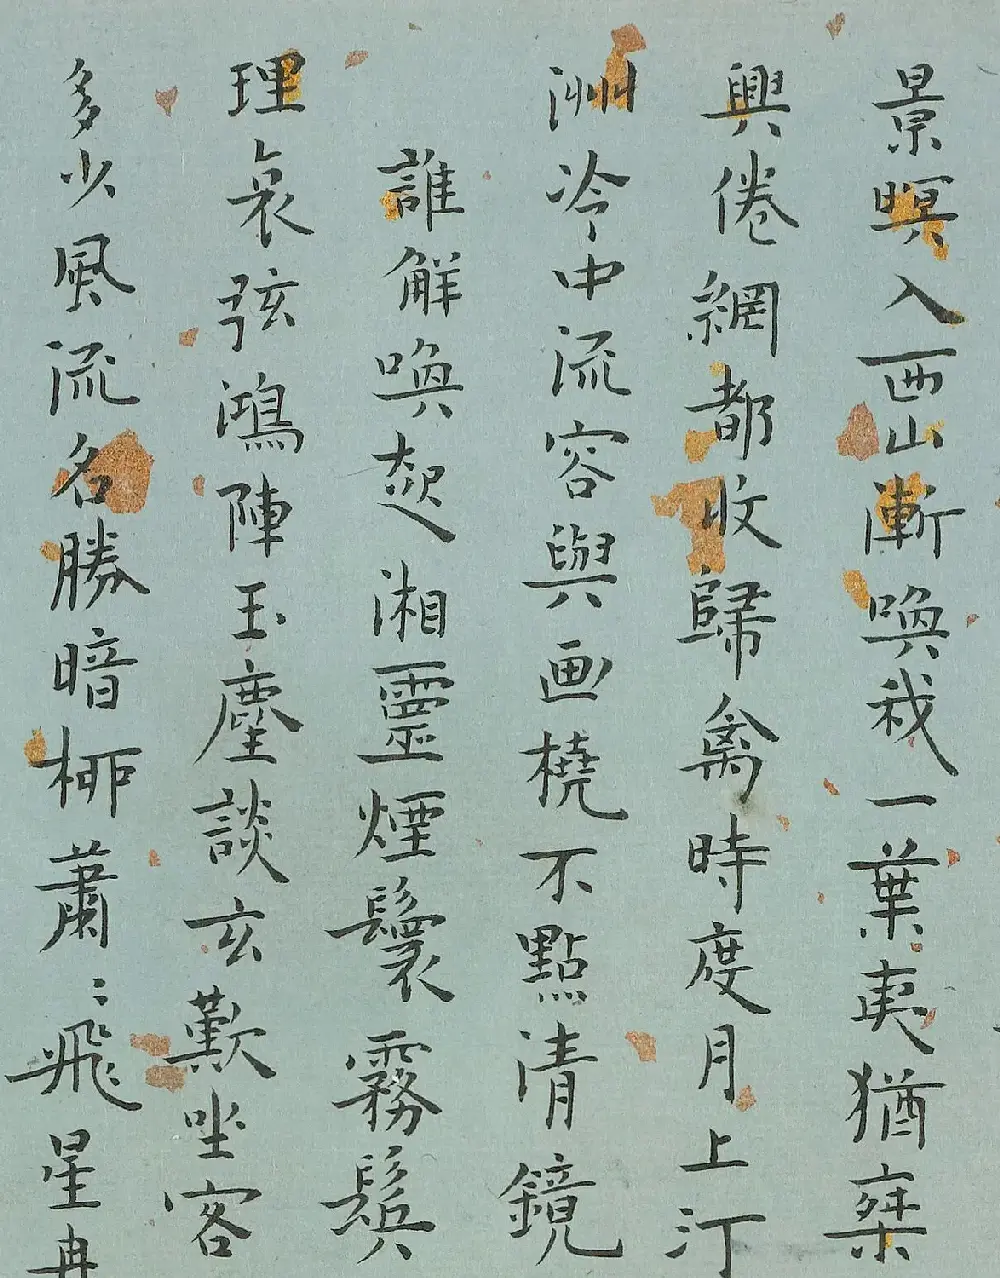 景暝入西山漸喚我一葉夷猶乘
興倦網都收歸禽時度月上汀
洲冷中流容與画橈不點清鏡
誰解喚起湘靈煙鬟霧鬢
理哀弦鴻陣玉麈談玄歎坐客
多少風流名勝暗柳蕭〻飛星冉